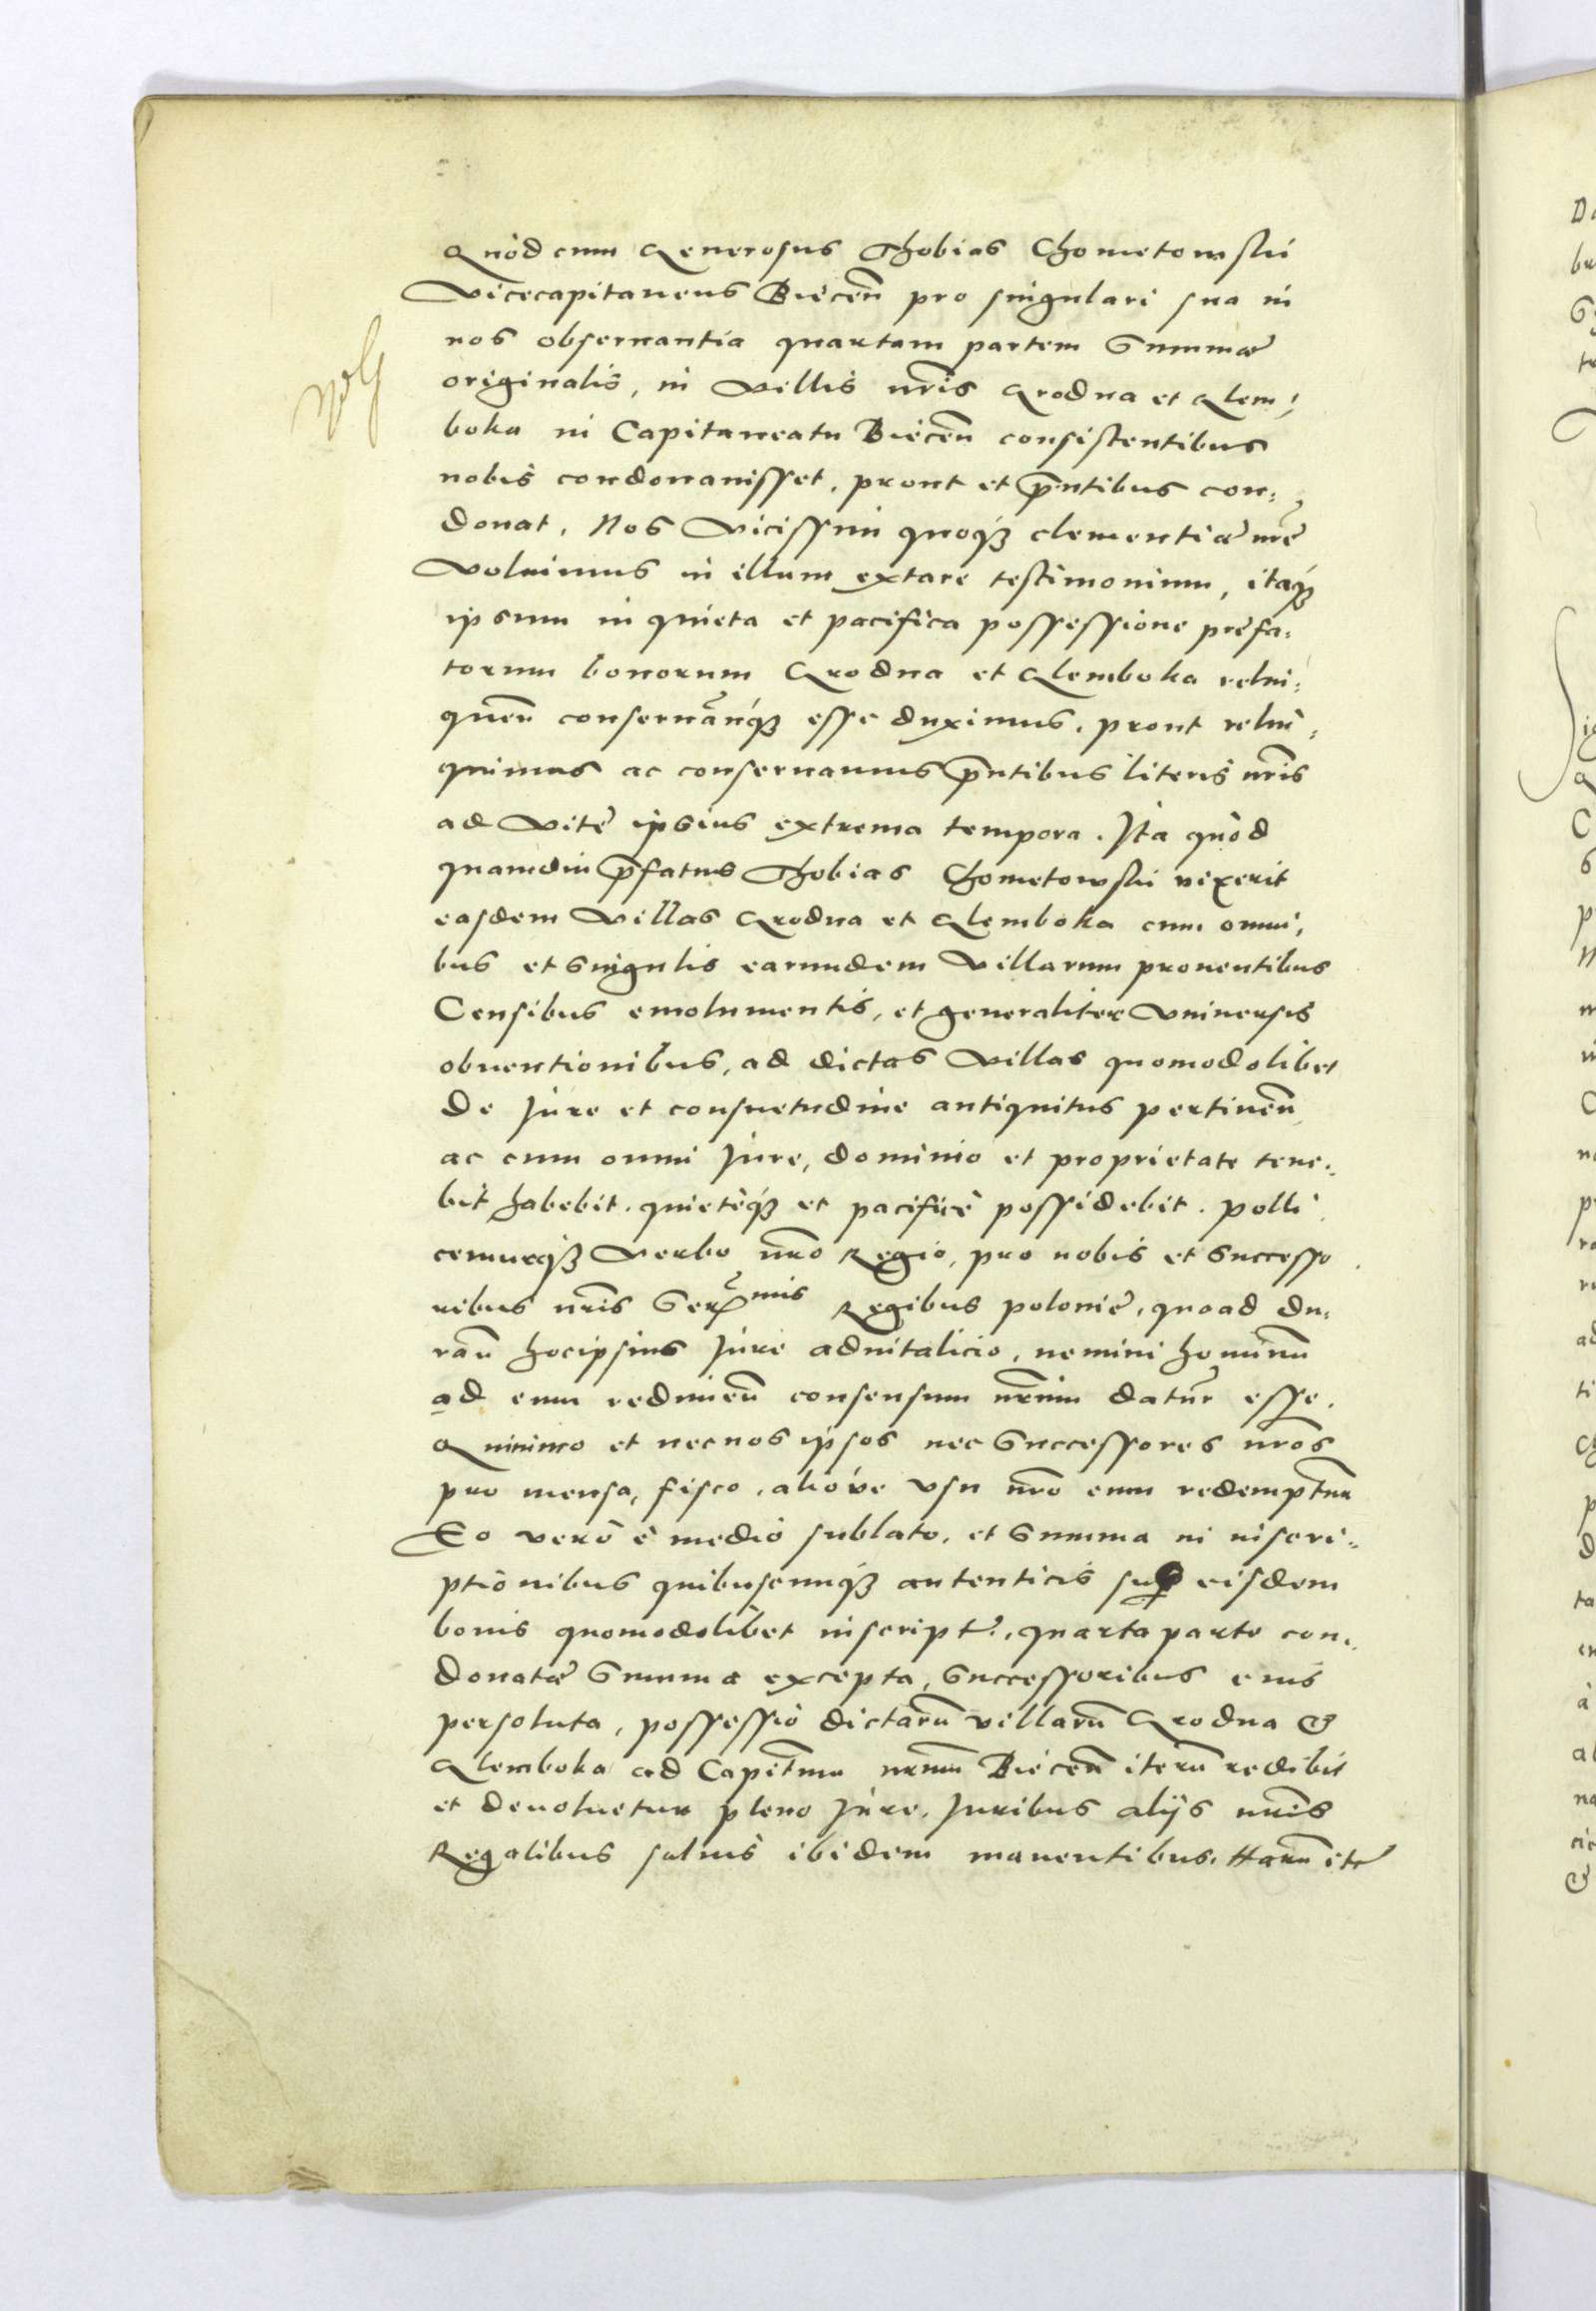 Quòd cum Generosus Thobias Chometowskj
Vicecapitaneus Biecen̄ pro singulari sua in
nos obseruantia quartam partem Summæ
originalis, in Villis nr̄is Grodna et Glem:
boka in Capitaneatu Biecen̄ consistentibus
nobis condonauisset, prout et p̄ntibus con:
donat. Nos Vicissim quoqꝫ clementiæ nr̄e
Voluimus in illum extare testimonium, itaqꝫ
ipsum in quieta et pacifica possessione prefa:
torum bonorum Grodna et Glemboka relin:
quen̄ conseruan̄qꝫ esse duximus, prout relin:
quimus ac conseruamus p̄ntibus literis nr̄is
ad Vitę ipsius extrema tempora. Ita quòd
quamdiu p̄fatus Thobias Chometowskj vixerit
easdem Villas Grodna et Glemboka cum omni:
bus et singulis earundem Villarum prouentibus
Censibus emolumentis, et generaliter Vniuersis
obuentionibus, ad dictas Villas quomodolibet
de Jure et consuetudine antiquitus pertinen̄
ac cum omni Jure, dominio et proprietate tene:
bit habebit, quietèqꝫ et pacificè possidebit. Polli
cemurqꝫ Verbo nr̄o Regio, pro nobis et Successo
ribus nr̄is Ser^mis Regibus Polonię, quoad du:
ran̄ hocipsius Jure aduitalicio, nemini hominū
ad eum redimen̄ consensum nr̄um datur̄ esse.
Quinimo et nec nos ipsos nec Successores nr̄os
pro mensa, fisco, alióve vsu nr̄o eum redemptur̄
Eo verò è medio sublato, et Summa in inscri:
ptionibus quibuscunqꝫ autenticis sup̱ eisdem
bonis quomodolibet inscriptę, quarta parte con:
donatæ Summæ excepta, Successoribus eius
persoluta, possessio dictarū villarū Grodna &
Glemboka ad Capitm̄ nr̄um Biecen̄ iterū redibit
et deuoluetur pleno Jure, Juribus alijs nr̄is
Regalibus saluis ibidem manentibus. Harū ite